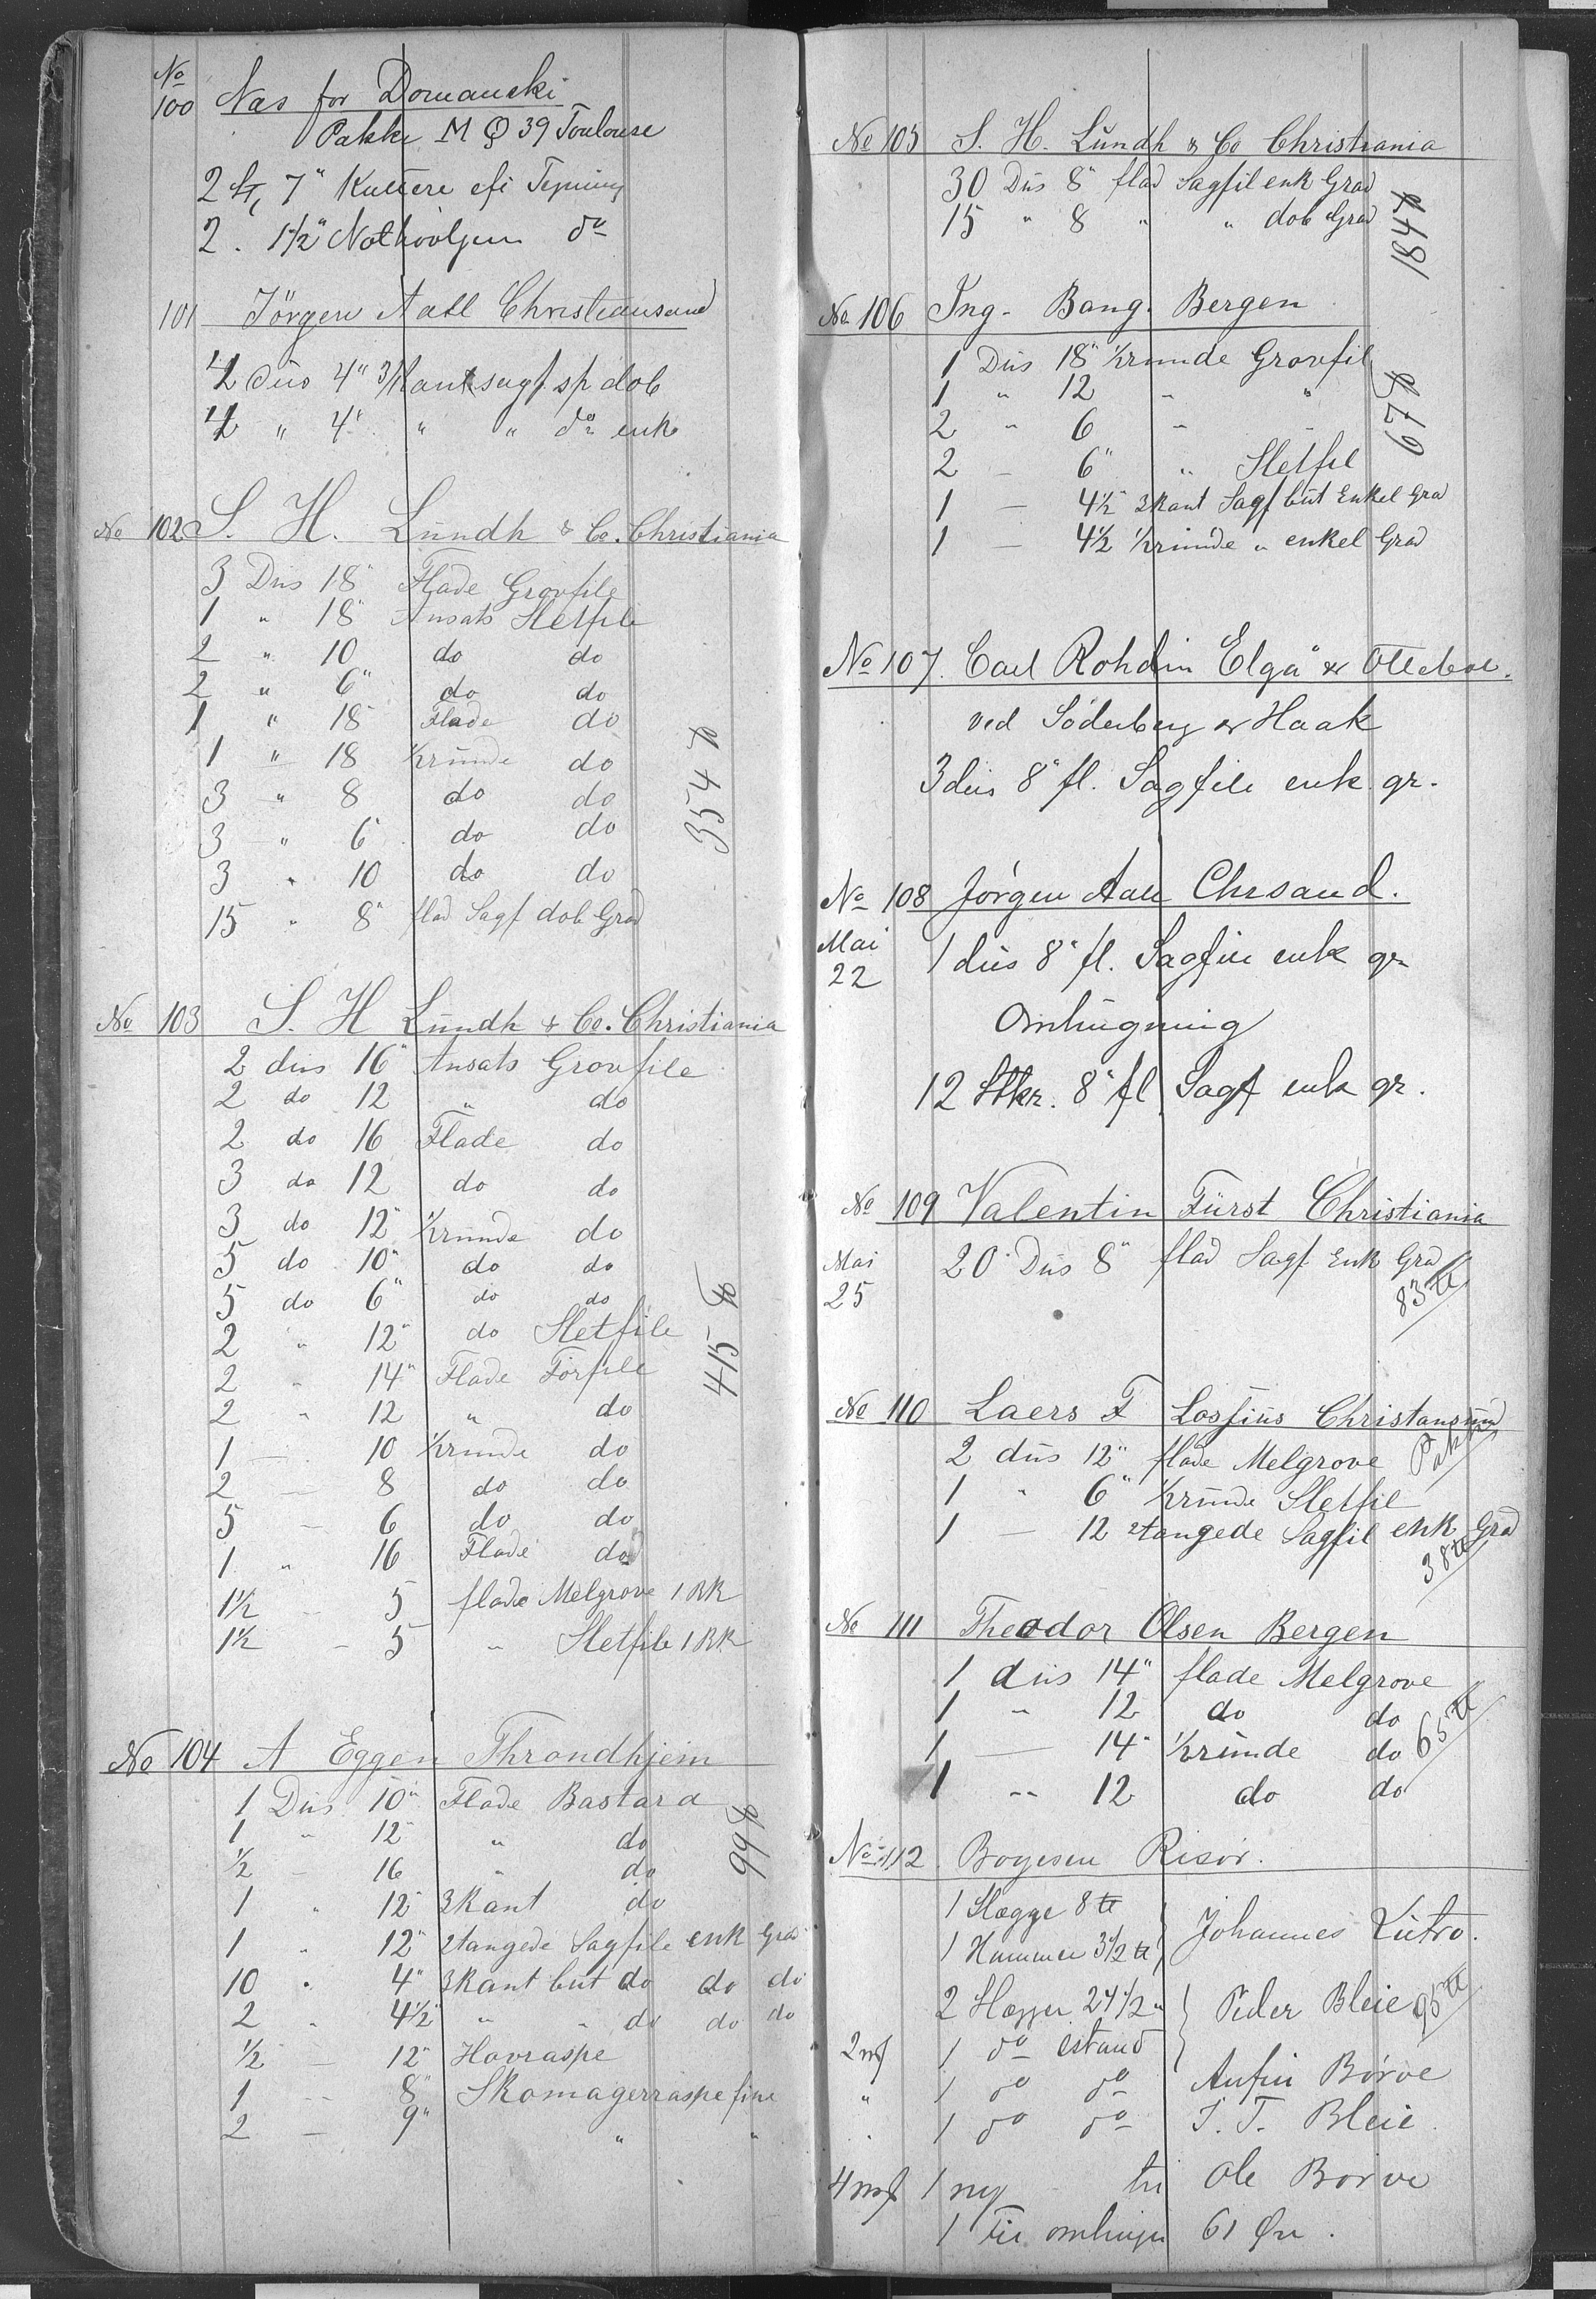 No
100 Næs for Domanski
Pakke M Q 39 Toulouse
2 St, 7" Kuttere efs Tegning
2 . 1 1/2" Nothövljern do
101 Jörgen Aall Christiansand
1/2 dus 4" 3/Kant sagf. sp dob
1/2 " 4" " " do enk
No 102 S. H. Lundh & Co. Christiania
3 Dus 18" Flade Grovfile
1 " 18" Ansats Sletfile
2 " 10 do do
2 " 6" do do
1 " 18" Flade do
1 " 18 1/2runde do
3 " 8 do do
3 " 6 do do
3 " 10 do do
15 " 8" flad Sagf dob Grad
354 ℔
No 103 S. H Lundh & Co. Christiania
2 dus 16" Ansats Grovfile
2 do 12 " do
2 do 16 Flade do
3 do 12 do do
3 do 12" 1/2runde do
5 do 10" do do
5 do 6" do do
2 " 12" do Sletfile
2 " 14" Flade Forfile
2 " 12 " do
1 — 10 1/2runde do
2 — 8 do do
5 — 6 do do
1 " 16 Flade do
1 1/2 — 5 flade Melgrove 1 RK
1 1/2 — 5 " Sletfile 1 RK
415 ℔
No 104 A Eggen Throndhjem
1 Dus 10" Flade Bastard
1 " 12" " do
1/2 — 16 " do
1 " 12" 3kant do
1 " 12" 2tangede Sagfile enk Grad
10 " 4" 3Kant but do do do
2 " 4 1/2" " " do do do
1/2 — 12" Hovraspe
1 — 8" Skomagerraspe fine
2 — 9" " "
99 ℔
No 105 S. H. Lundh & Co Christiania
30 Dus 8" flad Sagfil enk Grad
15 " 8 " " dob Grad
184 ℔
No 106 Ing. Bang. Bergen
1 Dus 18" 1/2runde Grovfil
1 " 12 " "
2 " 6 " "
2 — 6" " Sletfil
1 — 4 1/2" 3kant Sagf but Enkel Grad
1 — 4 1/2 1/2runde " enkel Grad
67 ℔
No 107. Carl Rohdin Elgå & Ottebol.
ved Söderberg & Haak
3 dus 8" fl. Sagfile enk gr.
No 108 Jörgen Aall Chrsand.
Mai
22
1 dus 8" fl. Sagfile enk gr
Omhugning
12 Stkr. 8" fl Sagf enk gr.
No 109 Valentin Fürst Christiania
Mai
25
20 Dus 8" flad Sagf Enk Grad
83 ℔
No 110 Laers F Lossius Christansund
Pakke
2 dus 12" flade Melgrove
1 " 6" 1/2runde Sletfil
1 — 12 2tangede Sagfil enk Grad
38 ℔
No 111 Theodor Olsen Bergen
1 dus 14" flade Melgrove
1 " 12 do do
1 — 14" 1/2runde do
1 " 12 do do
65 ℔
No 112 Boyesen Risör.
1 Slægge 8 ℔
1 Hammer 3 1/2 ℔ Johannes Lutro.
2 Slægger 24 1/2 " Peder Bleie
95 ℔
1 do
" 1 do do Anfin Börve
" 1 do do T. Bleie
1 ny til Ole Börve
1 omhugn 61 Öre.